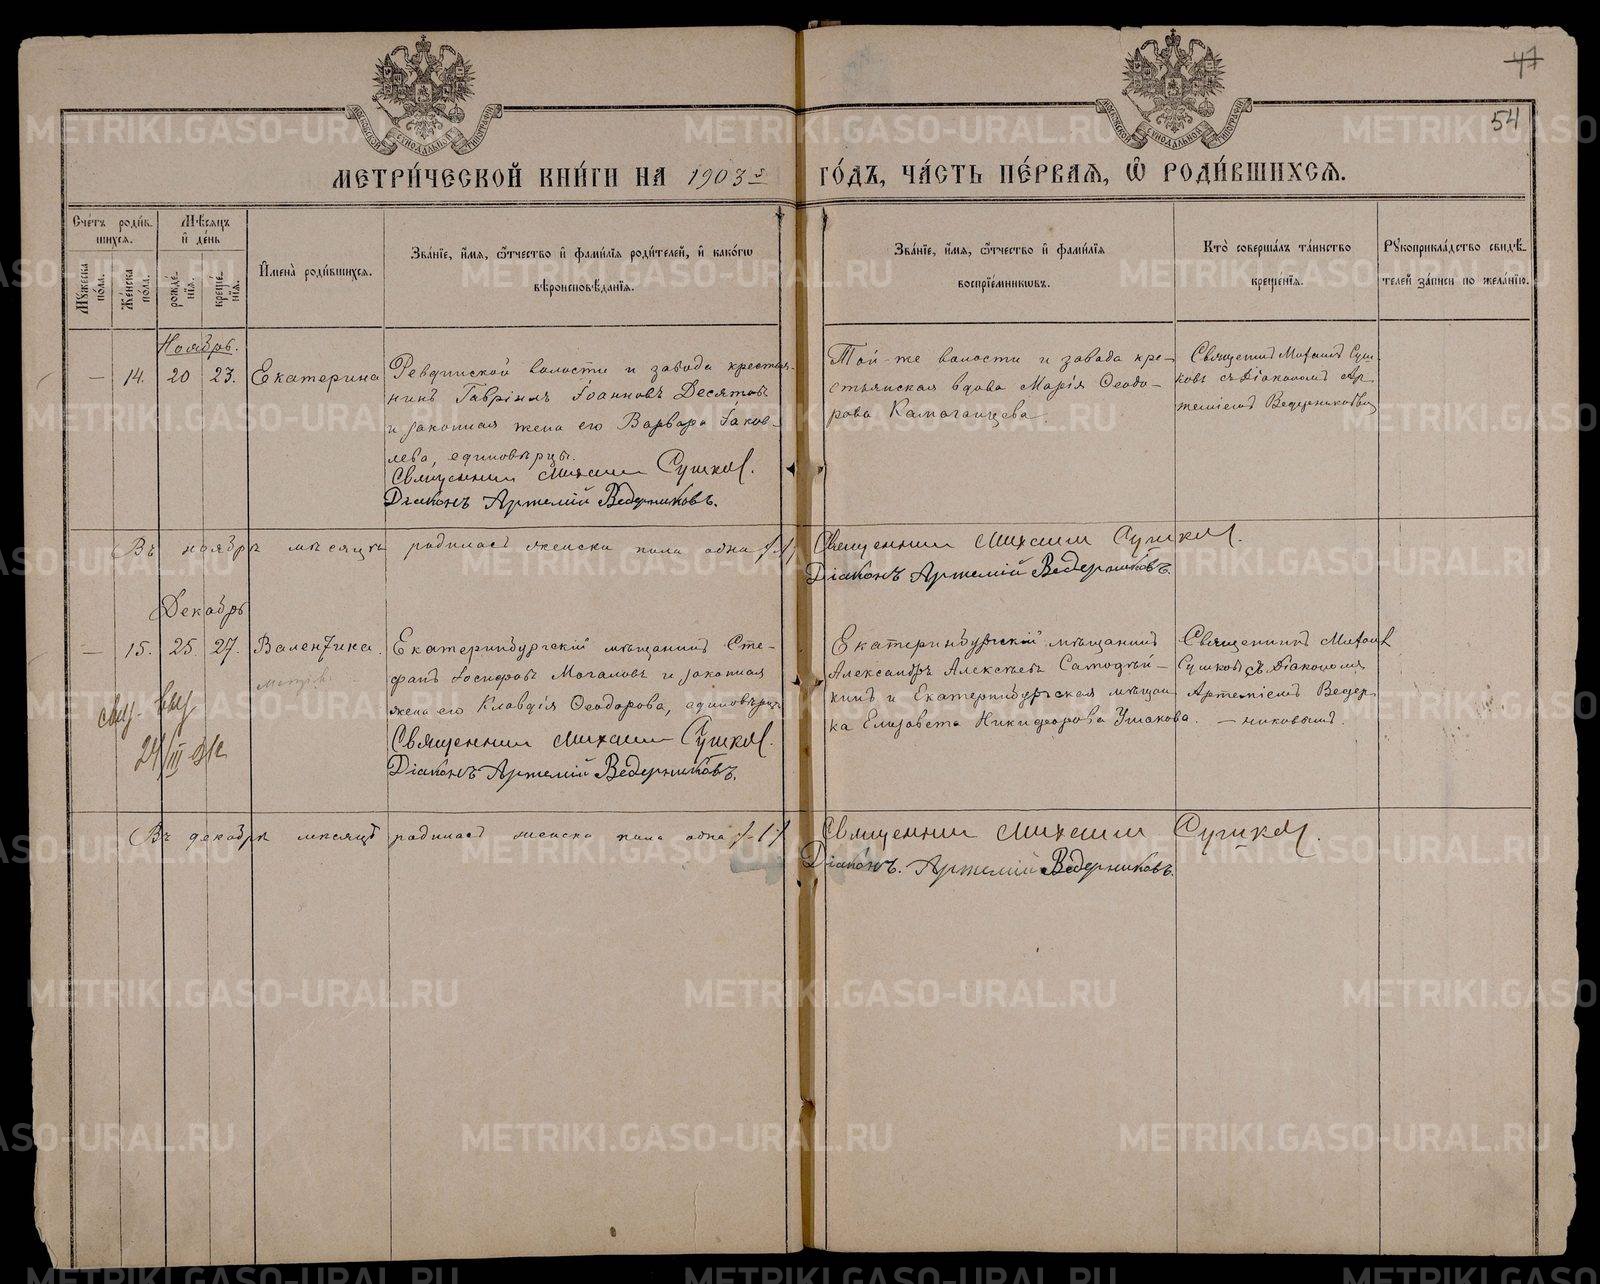 47
54
МОСКОВСКОЙ СѴНОДАЛЬНОЙ ТИПОГРАФІИ
МОСКОВСКОЙ СѴНОДАЛЬНОЙ ТИПОГРАФІИ
МЕТРИ́ЧЕСКОЙ КНИ́ГИ НА 1903 й ГО́ДЪ, ЧА́СТЬ ПЕ́РВАѦ, Ѽ РОДИ́ВШИХСѦ.
Сче́тъ роди́в
шихсѧ.
Мꙋжеска по́ла.
Же́нска по́ла.
Мѣ́сѧцъ
и҆ де́нь
рожде́нїѧ.
креще́нїѧ.
И҆мена̀ роди́вшихсѧ.
Зва́нїе, и҆́мѧ, ѻ҆́тчество и҆ фами́лїѧ роди́телей, и҆ како́гѡ
вѣроисповѣ́данїѧ.
Зва́нїе, и҆́мѧ, ѻ҆́тчество и҆ фами́лїѧ
воспрїе́мникѡвъ.
Кто̀ соверша́лъ та́инство
креще́нїѧ.
Рꙋкоприкла́дство свидѣ́
телей за́писи по жела́нїю.
Ноябрь.
— 14. 20 23. Екатерина
Ревдинской волости и завода крестья-
нинъ Гавріилъ Іоанновъ Десятовъ
и законная жена его Варвара Іаков-
лева, единовѣрцы.
Священникъ Михаилъ Сушковъ.
Діаконъ Артемій Ведерниковъ.
Той-же волости и завода кре-
стьянская вдова Марія Ѳеодо-
рова Камаганцева
Священникъ Михаилъ Суш
ковъ съ діакономъ Ар
теміемъ Ведерниковым
Въ ноябрѣ мѣсяцѣ родилась женска пола одна /1/
Священникъ Михаилъ Сушковъ.
Діаконъ Артемій Ведерниковъ.
Декабрь
— 15. 25 27. Валентина.
метрик
Екатеринбургскій мѣщанинъ Сте-
фанъ Іосифовъ Могаловъ и законная
жена его Клавдія Ѳеодорова, единовѣрцы
Священникъ Михаилъ Сушковъ.
Діаконъ Артемій Ведерниковъ.
Екатеринбургскій мѣщанинъ
Александръ Алексѣевъ Самодѣй-
кинъ и Екатеринбургская мѣщан
ка Елизавета Никифорова Ушакова.
Священникъ Михаилъ
Сушковъ съ діакономъ
Артеміемъ Ведер
— никовымъ.
24/III
Въ декабрѣ мѣсяцѣ родилась женска пола одна /-1/
Священникъ Михаилъ Сушковъ.
Діаконъ. Артемій Ведерниковъ.
METRIKI.GASO-URAL.RU